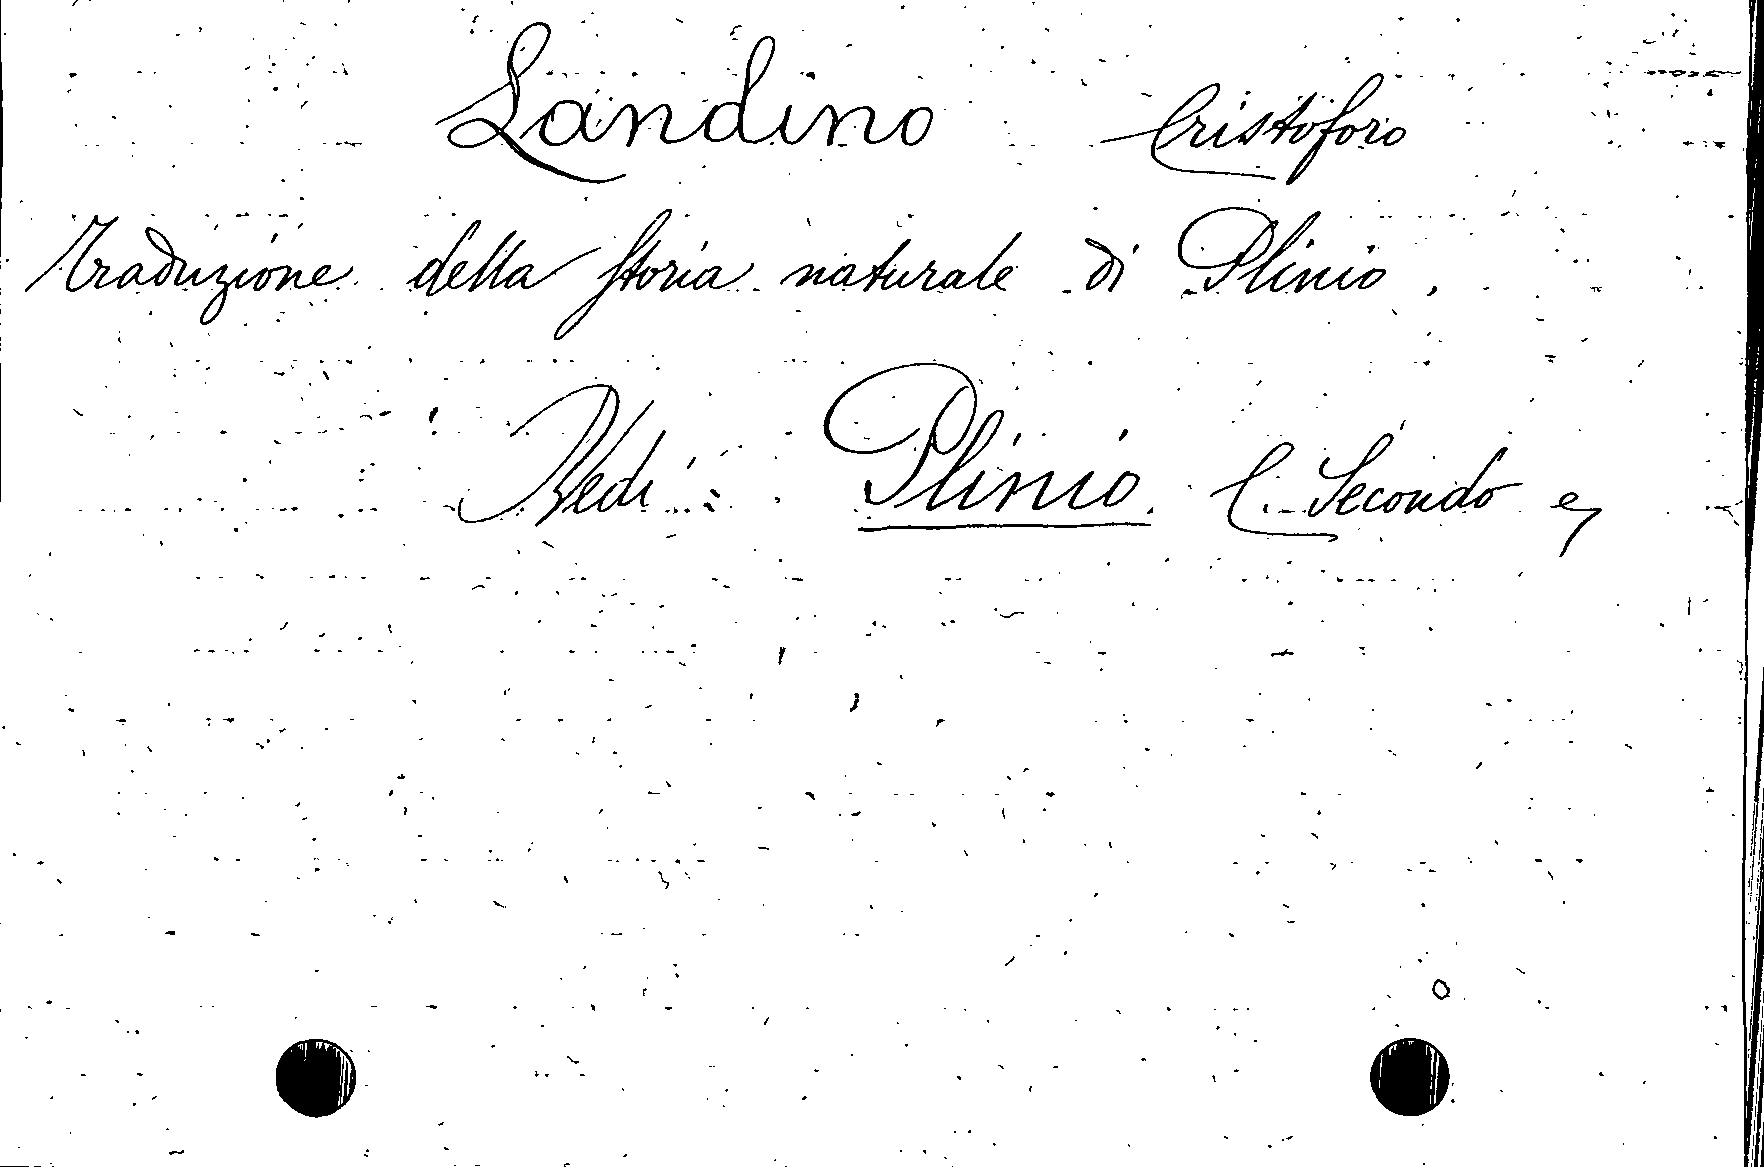 Landino Cristoforo
Traduzione della Storia naturale di Plinio.
Vedi: Plinio C. Secondo